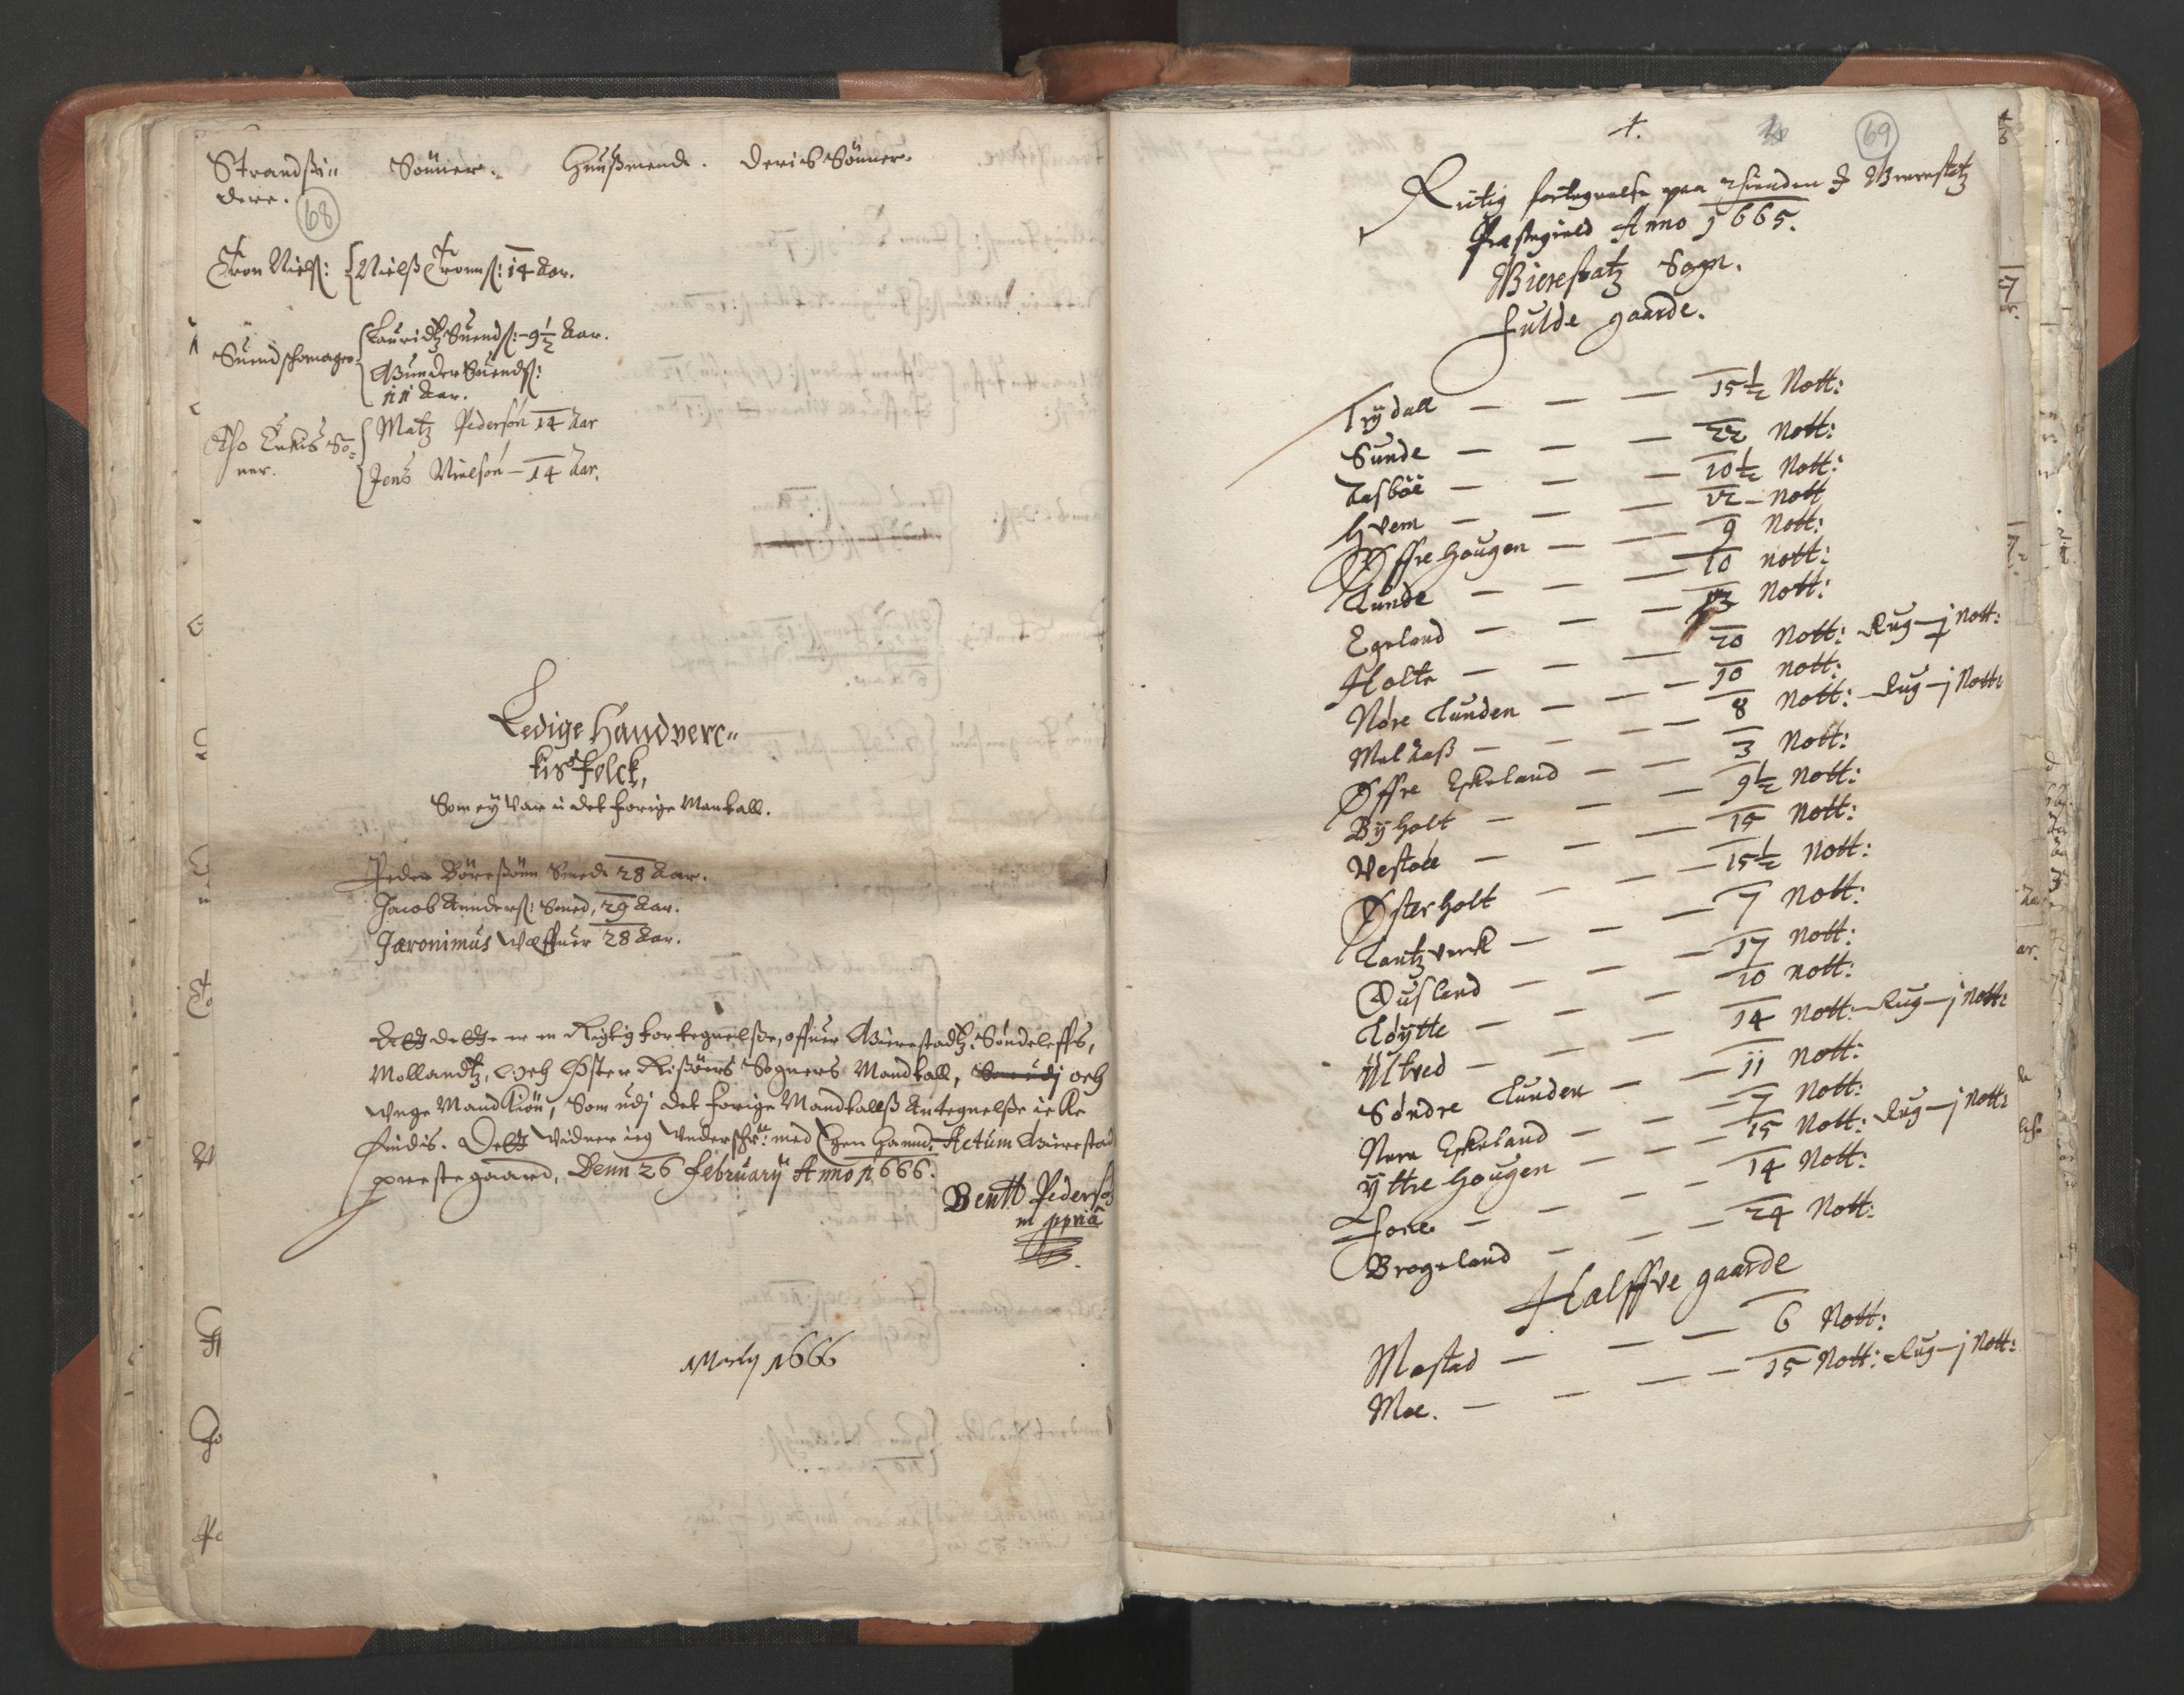 Strandsi=
dere.
Sönner.
Huußmend.
Deris Sönner.
68
Tron Nielß: Nielß Tronnß: 14 Aar.
Suend schomager
Lauridtz Suendß: 9½ Aar.
Gunder Suendß:
11 Aar.
Tho Enkis Sö=
ner.
Matz Pedersön 14 Aar
Jens Nielsön — 14 Aar.
Ledige Handverc=
kis folck,
Som ey Var i det forige Mantall.
Peder Böresßönn Smed 28 Aar.
Jacob Annderß: Smed, 29 Aar.
Jæronimus Wæffuer 28 Aar.
Att dette er en Rigtig fortegnelße, offuer Gierestadtz, Söndeleffs,
Mollandtz, och Öster Rißöers Sogners Mandtall, Som udj och
unge Mandkiön, Som udj det forige Mandtallß Antegnelße icke
findis. Dette Vidner ieg Underschr: med Egen Haand. Actum Gierestad
prestegaard, Denn 26 February Anno 1666.
Bentt Peders
m ppria
Marty 1666
1.
69
Rictig fortegnelse paa Thienden I Gierestatz
Præstegield Anno 1665.
Gierestatz Sogn.
fulde gaarde.
Trydall — — — 15½ Nott:
Sunde — — — 22 Nott:
Aasböe — — — 10½ Nott:
Hvem — — — 12 — Nott
Øffre Hougen — — 9 Nott:
Lunde — — — 10 nott:
Egeland — — — 13 Nott:
Holte — — — 20 Nott: Rug — j Nott:
Nöre Lunden — — — 10 nott:
Mel Aaß — — — 8 Nott: Rug — j Nott:
Øffre Eskeland — — — 3 Nott:
Byholt — — — 9½ Nott:
Vestöel — — — 15 Nott:
Østerholt — — — 15½ Nott:
Lantzverk — — — 7 Nott:
Ousland — — — 17 Nott:
Löytte — — — 10 nott:
Ultved — — — 14 Nott: Rug — j Nott:
Søndre Lunden — — 11 Nott:
Nere Eskeland — — — 7 Nott:
Yttre Hougen — — — 15 Nott: Rug — j Nott:
fone — — — 14 Nott:
Brogeland — — — 24 Nott:
Halffve gaarde
Mostad — — — 6 Nott:
Moe. — — — 15 Nott: Rug — j Nott: